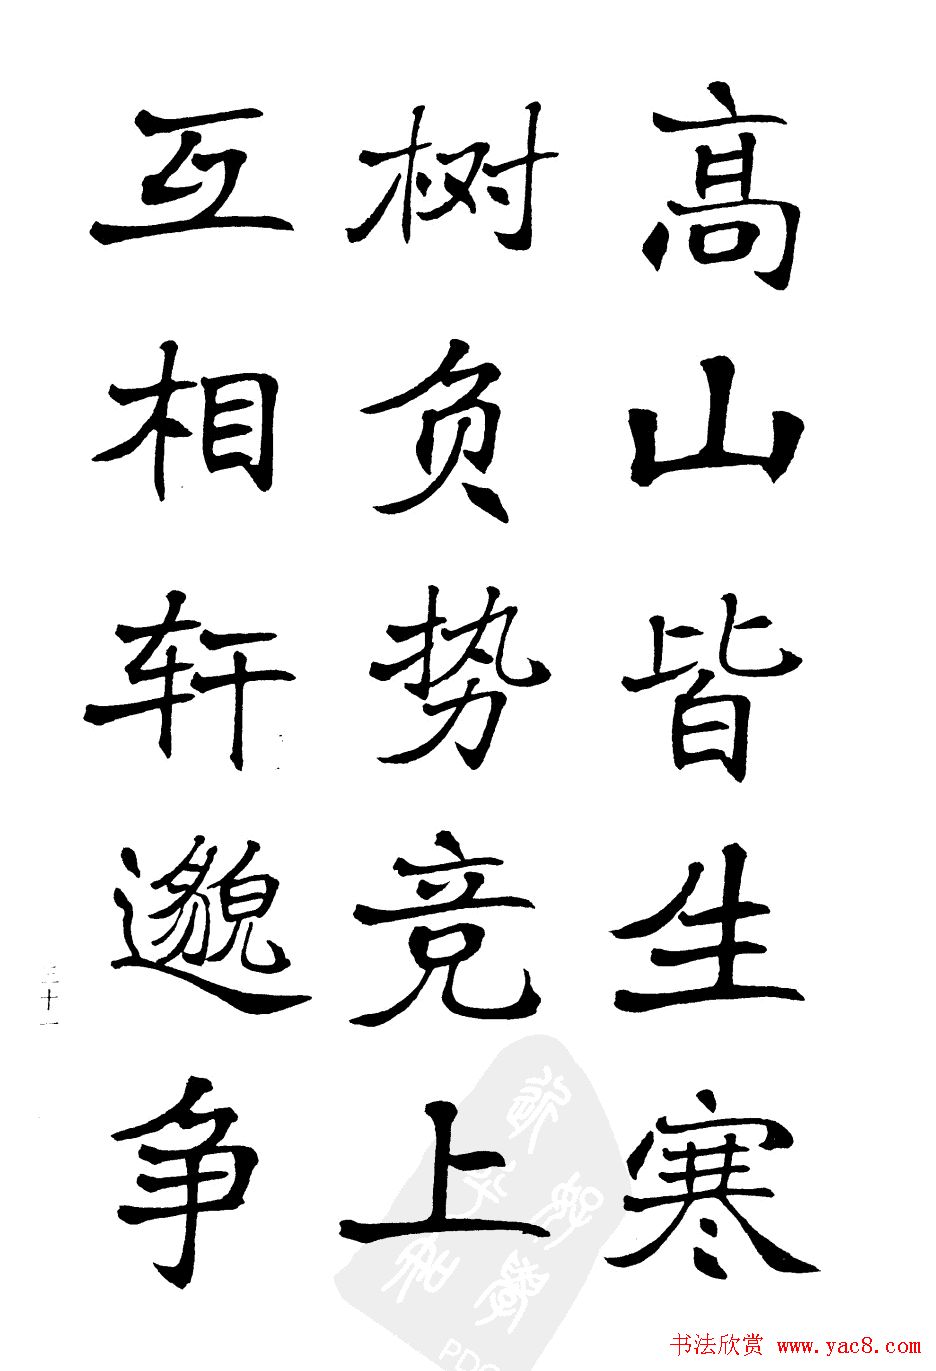 高山皆生寒
树负势竞上
互相轩邈争
三十一
书法欣赏 www.yac8.com
PDG